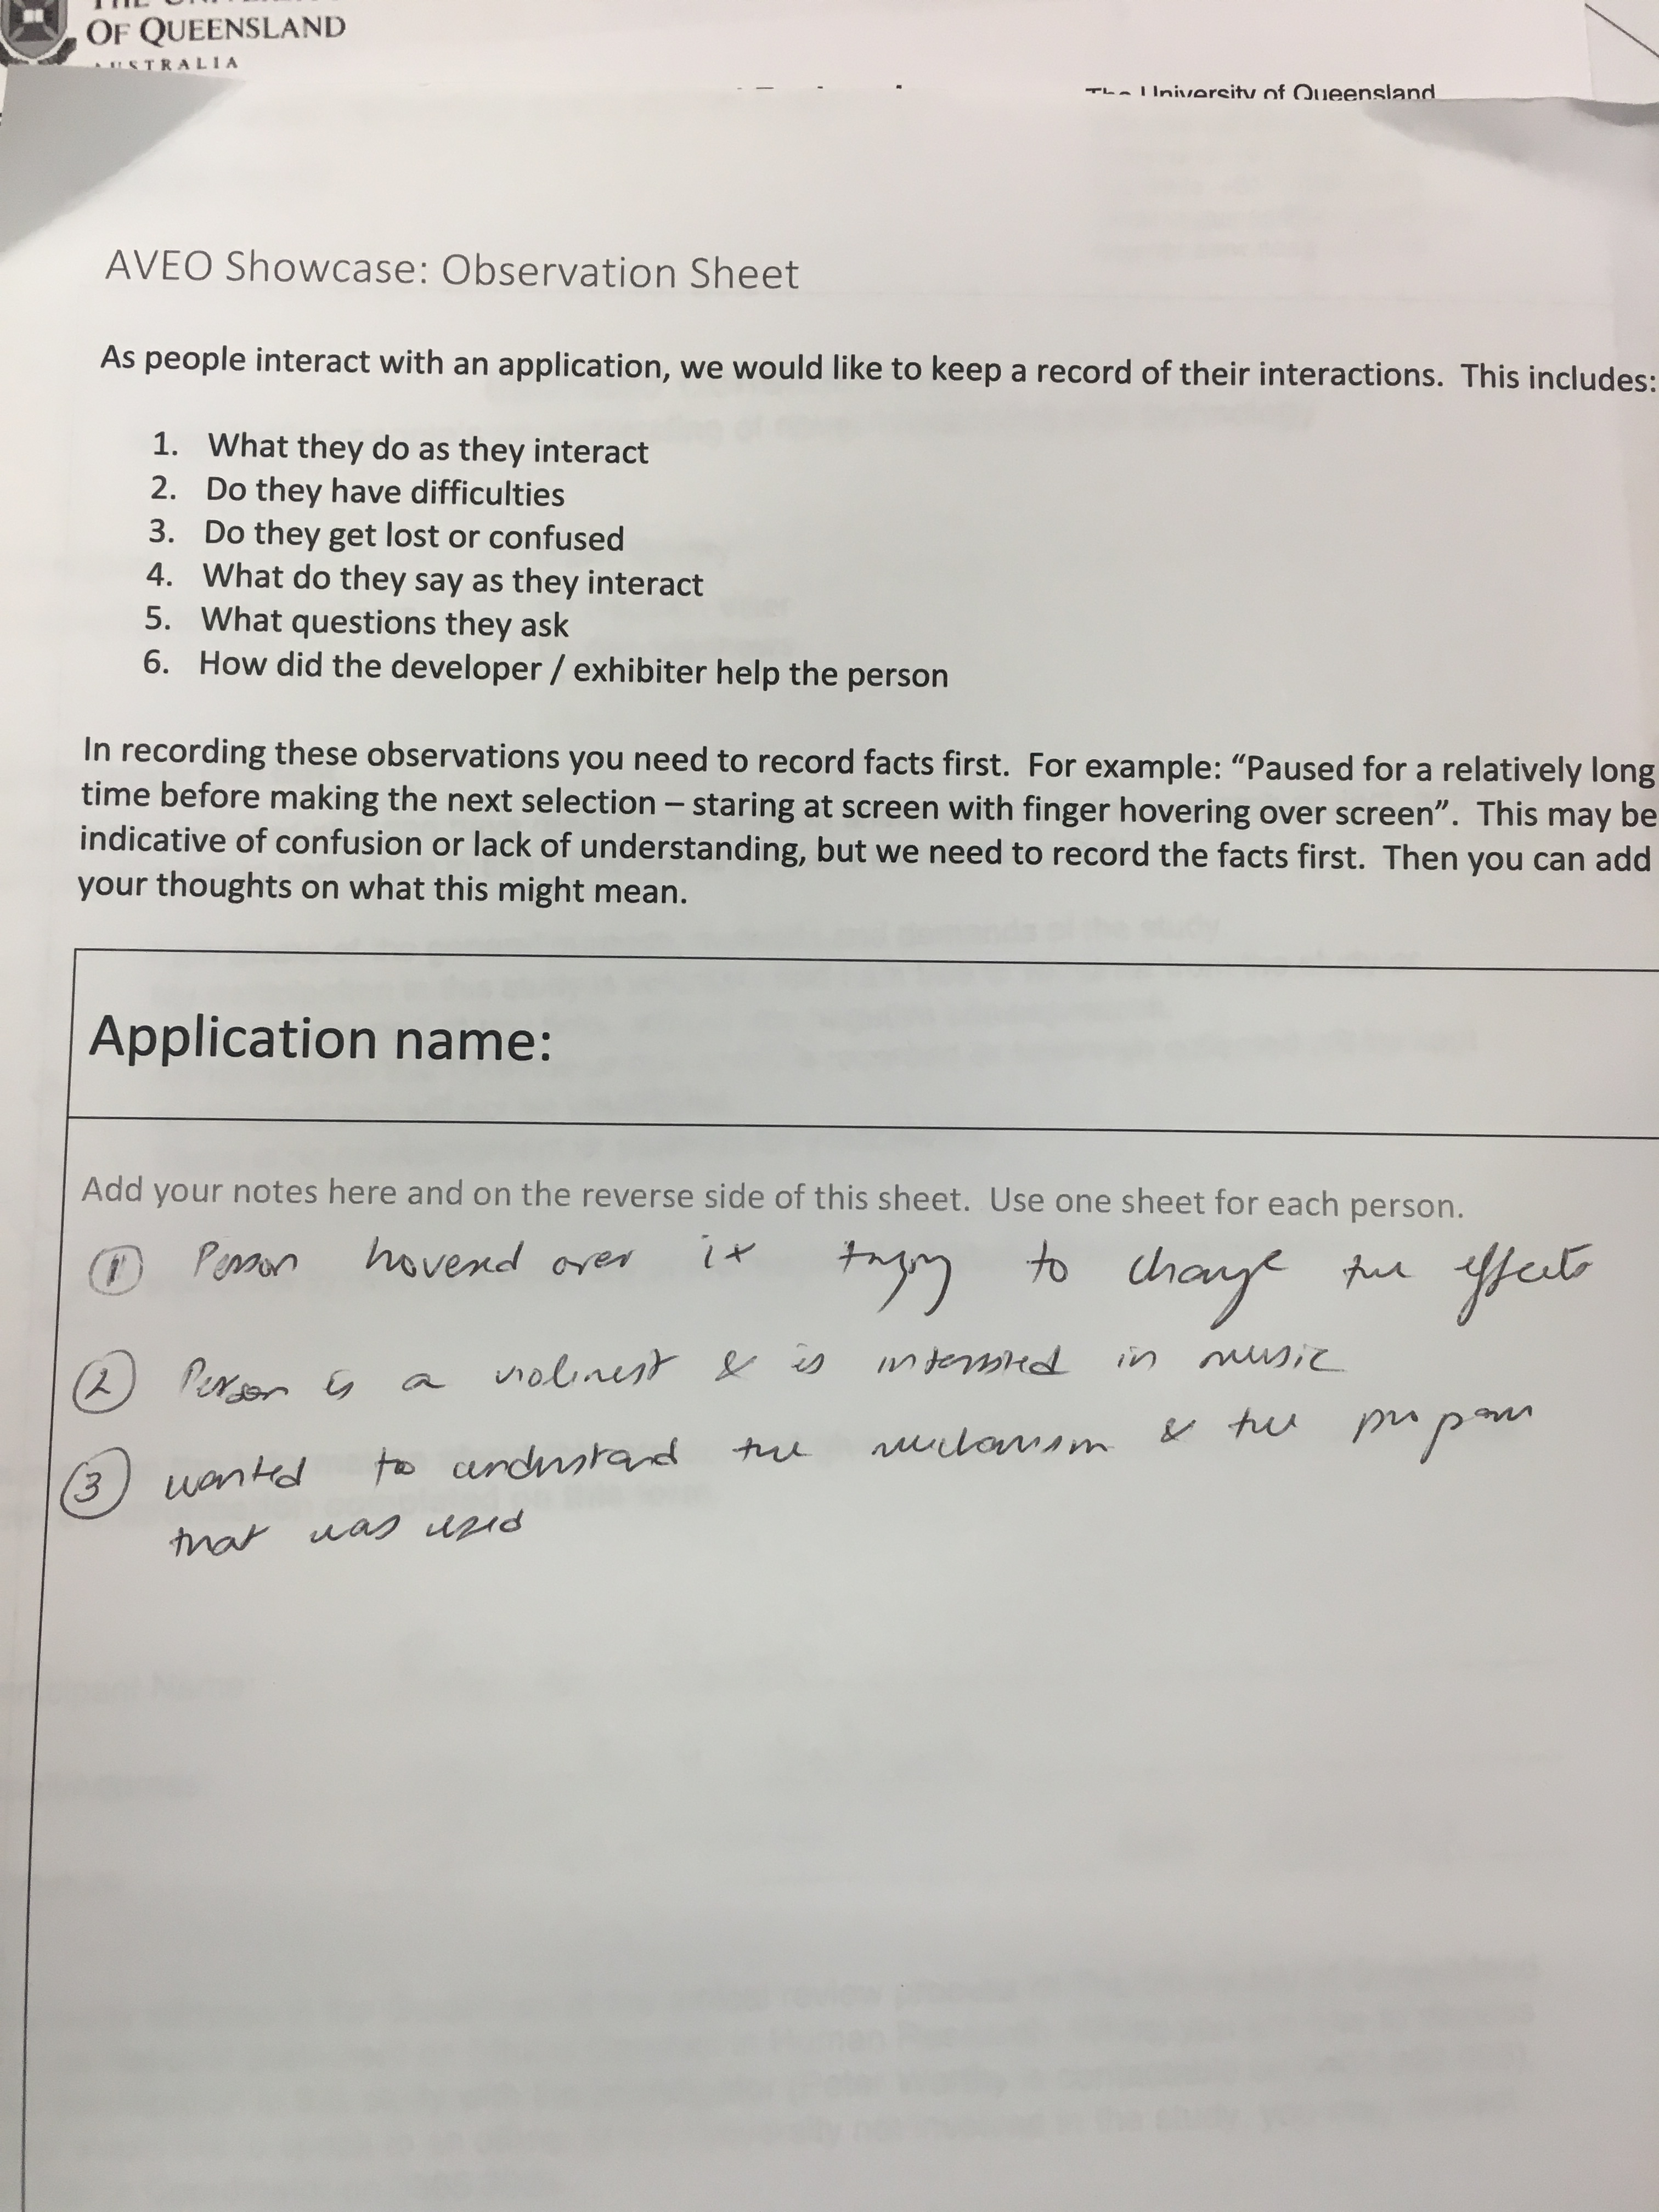 OF QUEENSLAND
AUSTRALIA
The University of Queensland
AVEO Showcase: Observation Sheet
As people interact with an application, we would like to keep a record of their interactions. This includes:
1. What they do as they interact
2. Do they have difficulties
3. Do they get lost or confused
4. What do they say as they interact
5. What questions they ask
6. How did the developer / exhibiter help the person
In recording these observations you need to record facts first. For example: “Paused for a relatively long
time before making the next selection – staring at screen with finger hovering over screen”. This may be
indicative of confusion or lack of understanding, but we need to record the facts first. Then you can add
your thoughts on what this might mean.
Application name:
Add your notes here and on the reverse side of this sheet. Use one sheet for each person.
① Person hovered over it trying to change the effects
② Person is a violinest & is interested in music
③ wanted to understand the mechanism & the program
that was used